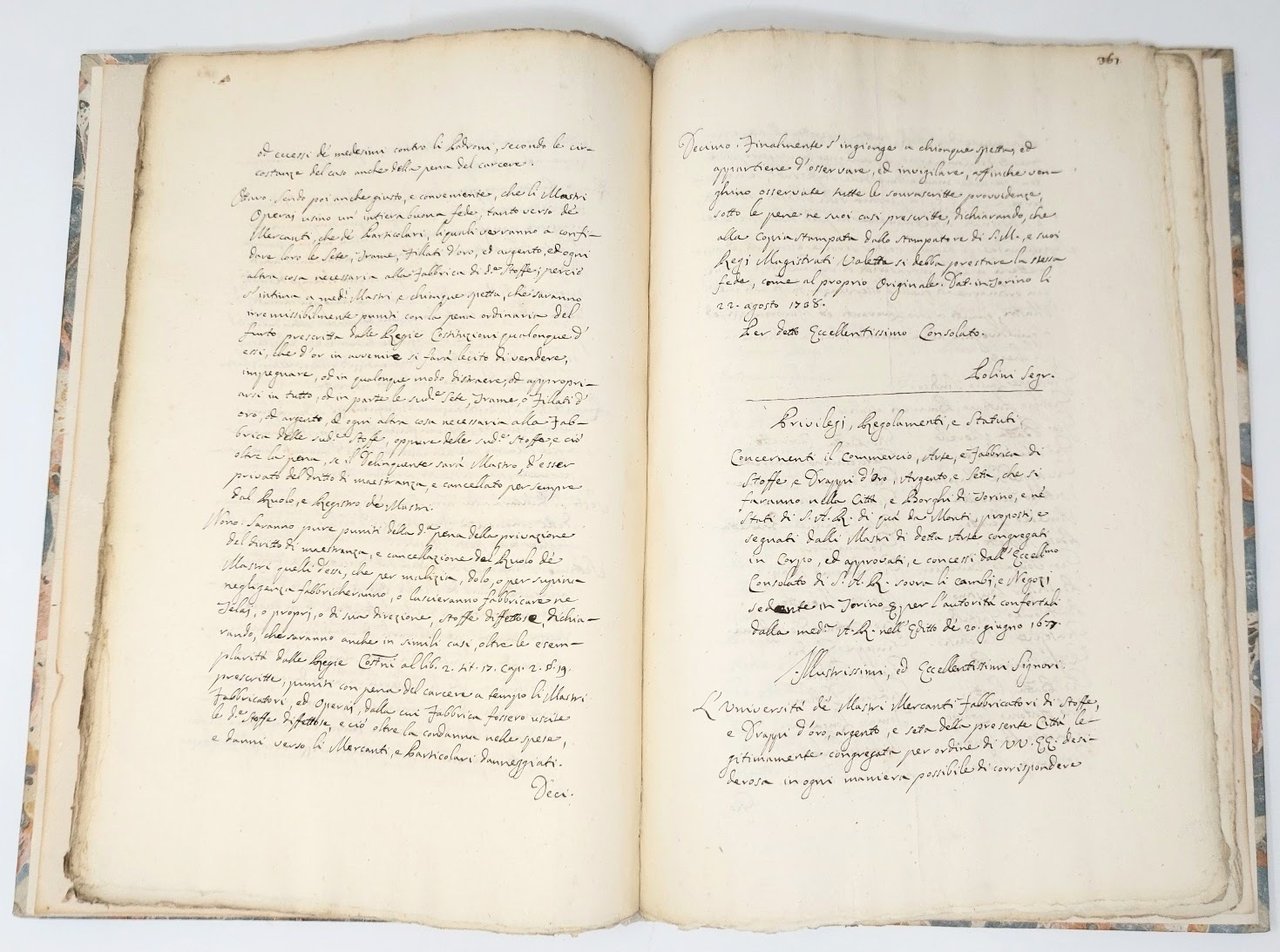 ed eccessi de' medesimi contro li Padroni, secondo le cir-
costanze del caso anche della pena del carcere.
Ottavo. Sendo poi anche giusto, e conveniente, che li Mastri
Operaj usino un' intiera buona fede, tanto verso de'
Mercanti, che de' Particolari, li quali verranno a confi-
dare loro le Sete, Trame, Fillati d'oro, ed argento, ed ogni
altra cosa necessaria alla Fabbrica di d.e Stoffe; perciò
s'intima a med.i Mastri, e chiunque spetta, che saranno
irremissibilmente puniti con la pena ordinaria del
furto prescritta dalle Regie Costituzioni qualonque d'
essi, che d'or in avvenire si farà lecito di vendere,
impegnare, od in qualonque modo distraere, ed appropri-
arsi in tutto, od in parte le sud.e Sete, Trame, o Fillati d'
oro, ed argento, ed ogni altra cosa necessaria alla Fab-
brica delle sud.e Stoffe, oppure delle sud.e Stoffe, e ciò
oltre la pena, se il Delinquente sarà Mastro, d'esser
privato del dritto di maestranza, e cancellato per sempre
dal Ruolo, e Registro de' Mastri.
Nono. Saranno pure puniti della d.a pena della privazione
del diritto di maestranza, e cancellazione del Ruolo de'
Mastri quelli d'essi, che per malizia, dolo, o per supina
negligenza fabbricheranno, o lascieranno fabbricare ne
Telaj, o proprj, o di sua direzione, Stoffe diffettose, dichia-
rando, che saranno anche in simili casi, oltre le esem-
plarità dalle Regie Cost.ni al lib. 2. tit. 17. Cap. 2. §. 19.
prescritte, puniti con pena del carcere a tempo li Mastri
Fabbricatori, ed Operaj, dalla cui Fabbrica fossero uscite
le d.e Stoffe diffettose, e ciò oltre la condanna nelle spese,
e danni verso li Mercanti, e Particolari danneggiati.
Deci-
361
Decimo. Finalmente s'ingionge a chionque spetta, ed
appartiene d'osservare, ed invigilare, affinche ven-
ghino osservate tutte le sovrascritte provvidenze
sotto le pene ne suoi casi prescritte, dichiarando, che
alla Copia stampata dallo Stampatore di S.M., e suoi
Regj Magistrati Valetta si debba prestare la stessa
fede, come al proprio Originale. Dat. in Torino li
22. agosto 1738.
Per detto Eccellentissimo Consolato.
Polini Segr.
Privilegj, Regolamenti, e Statuti,
Concernenti il Commercio, Arte, e Fabbrica di
Stoffe e Drappi d'Oro, Argento, e Seta, che si
faranno nella Città, e Borghi di Torino, e ne'
Stati di S.A.R. di quà da Monti, proposti, e
segnati dalli Mastri di detta Arte congregati
in Corpo, ed approvati, e concessi dall' Eccell.mo
Consolato di S.A.R. sovra li cambj, e Negozj
sedente in Torino per l'autorità confertali
dalla med.a A.R. nell'Editto de' 20. giugno 1677.
Illustrissimi, ed Eccellentissimi Signori.
L'Università de' Mastri Mercanti Fabbricatori di Stoffe,
e Drappi d'oro, argento, e seta della presente Città le-
gitimamente congregata per ordine di VV. EE. desi-
derosa in ogni maniera possibile di corrispondere